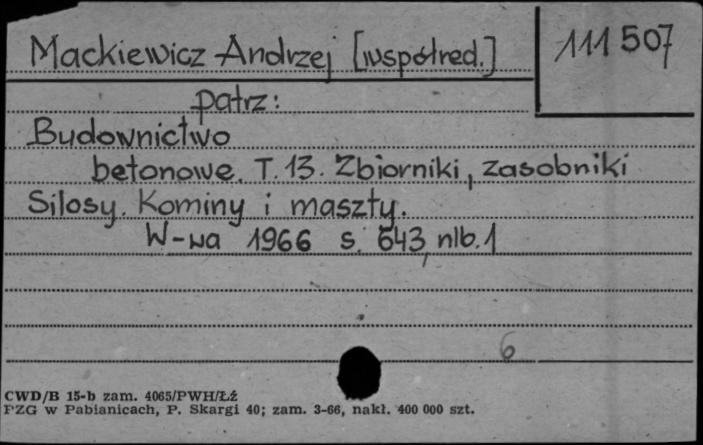 Mackiewicz Andrzej [współred.]
111507
patrz:
Budownictwo
betonowe. T. 13. Zbiorniki, zasobniki
Silosy. Kominy i maszty.
W-wa 1966 s. 643, nlb. 1
6
CWD/B 15-b zam. 4065/PWH/Łź
PZG w Pabianicach, P. Skargi 40; zam. 3-66, nakł. 400 000 szt.